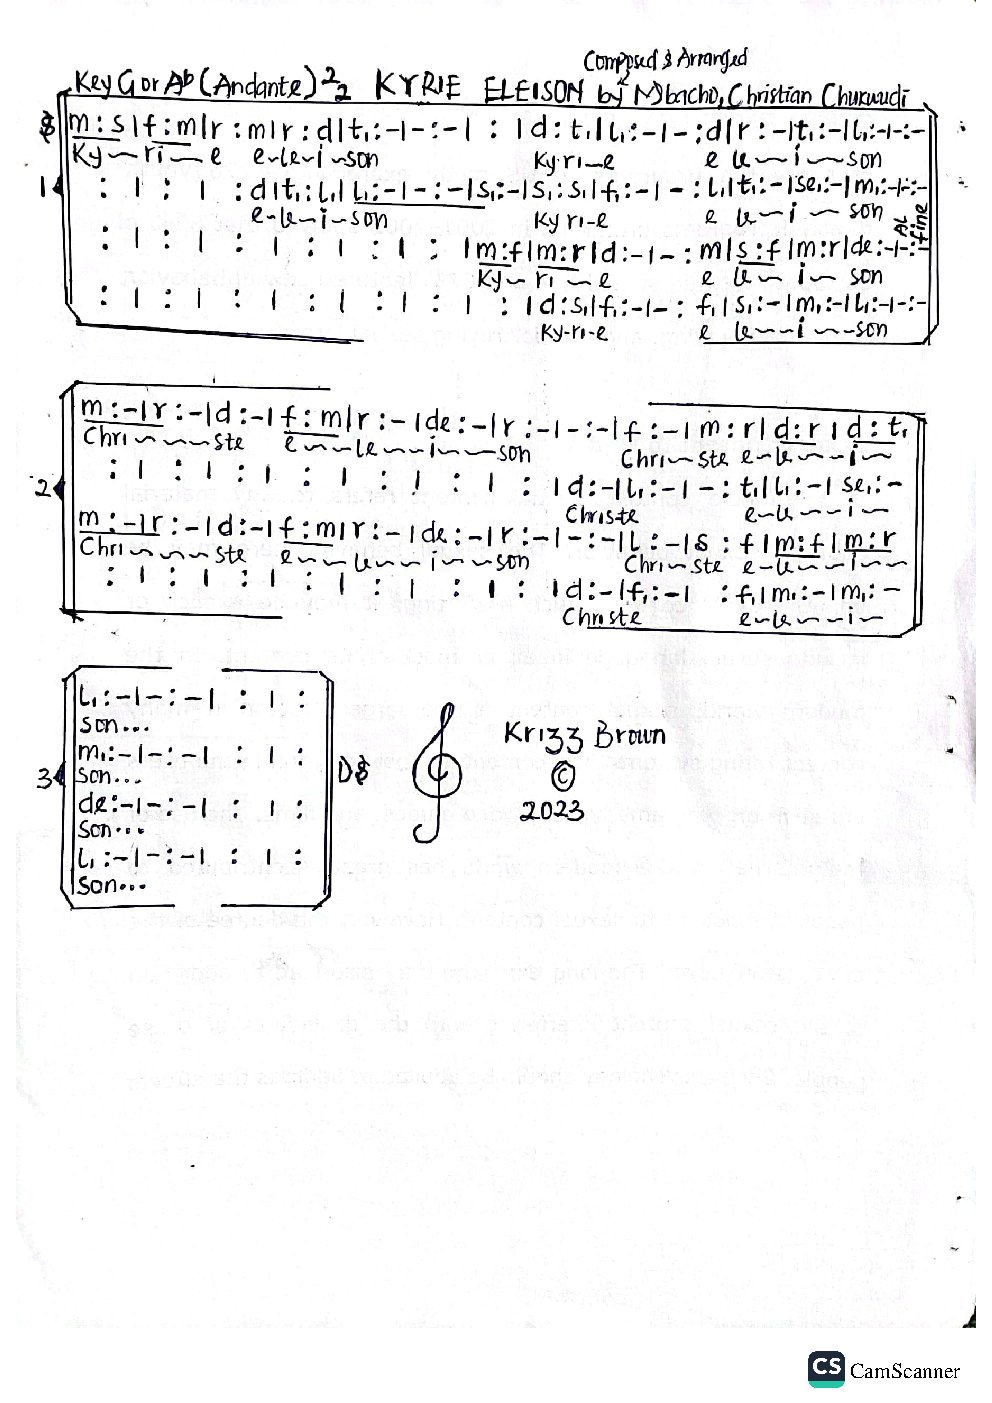 Composed & Arranged
Key G or Ab (Andante) 2/2 KYRIE ELEISON by Mbacho, Christian Chukwudi
m : s | f : m | r : m | r : d | t₁ : - | - : - | : | d : t₁ | l₁ : - | - : d | r : - | t₁ : - | l₁ : - | - : -
Ky ~ ri ~ e e-le-i-son Ky-ri-e e le ~ i ~ son
1 : | : | : d | t₁ : l₁ | l₁ : - | - : - | s₁ : - | s₁ : s₁ | f₁ : - | - : l₁ | t₁ : - | se₁ : - | m₁ : - | - : -
e-le-i-son Ky ri-e e le ~ i ~ son
: | : | : | : | : | : | : | m : f | m : r | d : - | - : m | s : f | m : r | de : - | - : Al fine
Ky ~ ri ~ e e le ~ i ~ son
: | : | : | : | : | : | : | d : s₁ | f₁ : - | - : f₁ | s₁ : - | m₁ : - | l₁ : - | - : -
Ky-ri-e e le ~ i ~ son
m : - | r : - | d : - | f : m | r : - | de : - | r : - | - : - | f : - | m : r | d : r | d : t₁
Chri ~ ~ ~ ste e ~ ~ le ~ ~ i ~ ~ son Chri ~ ste e-le ~ i ~
2 : | : | : | : | : | : | : | d : - | l₁ : - | - : t₁ | l₁ : - | se₁ : -
Christe e-le ~ i ~
m : - | r : - | d : - | f : m | r : - | de : - | r : - | - : - | l : - | s : f | m : f | m : r
Chri ~ ~ ~ ste e ~ ~ le ~ ~ i ~ ~ son Chri ~ ste e-le ~ i ~
: | : | : | : | : | : | : | d : - | f₁ : - | : f₁ | m₁ : - | m₁ : -
Christe e-le ~ i ~
l₁ : - | - : - | : | :
son...
m₁ : - | - : - | : | :
3 son... D$
de : - | - : - | : | :
son...
l₁ : - | - : - | : | :
son...
Krizz Brown
©
2023
CS CamScanner